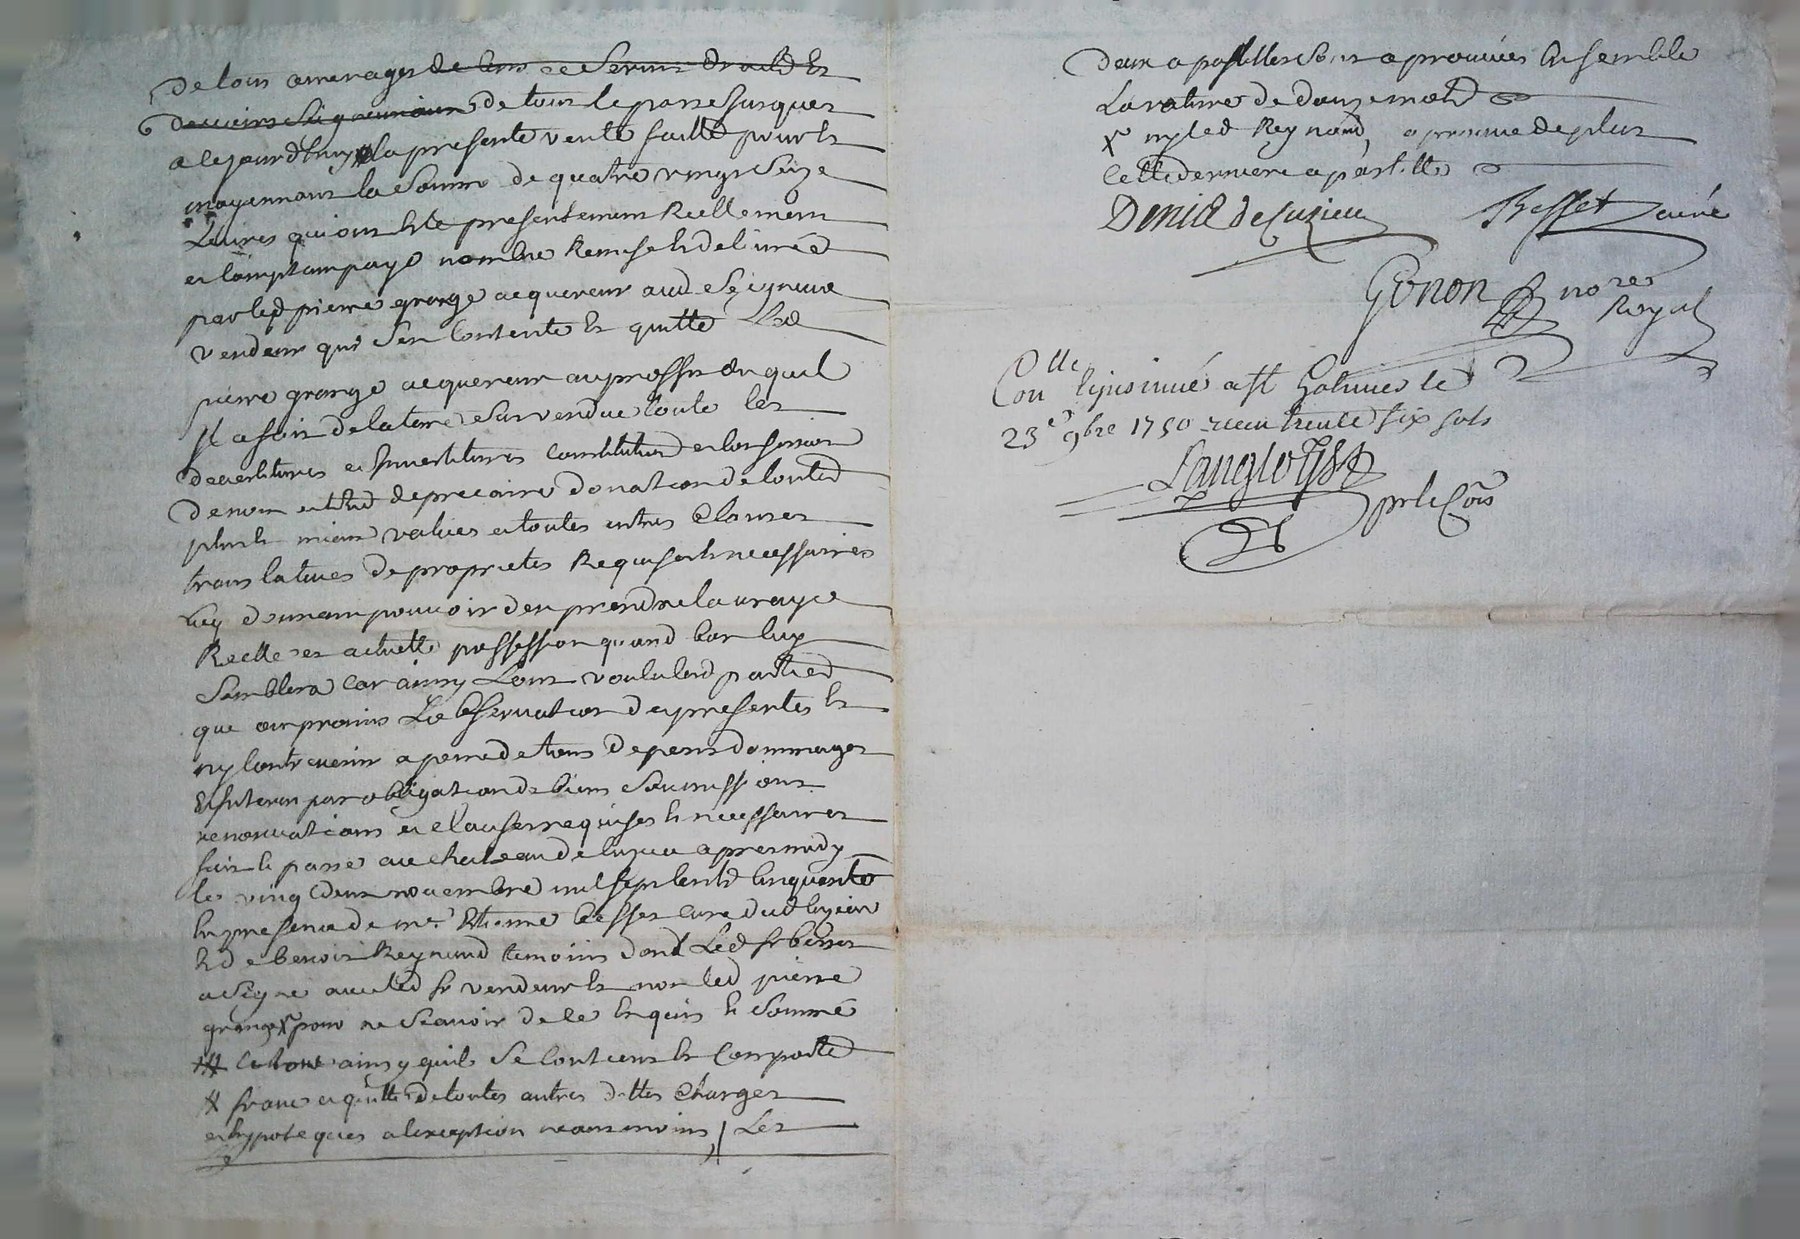 de tous arrerages de cens et servis droits et
devoirs seigneuriaux de tout le passé jusques
a cejourdhuy la presente vente faitte pour et
moyennant la somme de quatre vingt seize
Livres qui ont été presentement Reellement
et comptant payé nombré Remise et delivrée
par led pierre grange acquereur aud Seigneur
vendeur qui sen Contente et quitte led
pierre grange acquereur au proffit duquel
il a soit de la terre vendue toute les
devestitures et Investitures constitution et
de nom et titre de precaire donation de toutes
plus et mieux values et toutes autres clauses
translatives de proprietes Requises et necessaires
Luy donnant pouvoir den prendre la vraye
Reelle et actuelle possession quand bon luy
semblera car ainsy Lont voulu lesd parties
que ont promis L'observation des presentes et
ny contrevenir a peine de tous depens dommages
et interets par obligation de biens soumissions
renonciations et clauses requises et necessaires
fait et passé au chateau de luzieu apres midy
le vingt deux novembre mil sept cents cinquante
en presence de mre Etienne besset curé dud luzieu
et de benoit Reynaud temoins dont Led sr besset
a signé avec led sr vendeur et non led pierre
grange X pour ne scavoir de ce enquis et sommé
et tout ainsy quil se contient et comporte
X franc et quitte de toutes autres dettes charges
et hypoteques a lexception neantmoins / Les
deux apostilles sont aprouvées ensemble
La rature de douze mots
X ny led Reynaud, aprouvé de plus
cette derniere apostille
Denis de Cuzieu Besset curé
Gonon nore
Royal
Colle
con et insinué a St Galmier le
23e 9bre 1750 recu trente six sols
Langlois
pr le Cois